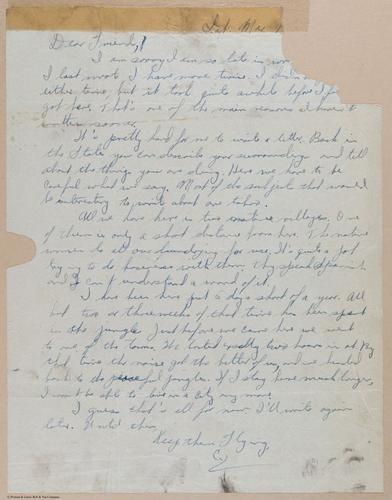 Sat. Mar.
Dear Friends,
I am sorry I am so late in
I last wrote I have more time. I
either town, but it took quite awhile before I
got here. That's one of the main reasons I haven't
written sooner.
It's pretty hard for me to write a letter. Back in
the States you can describe your surroundings and tell
about the things you are doing. Here we have to be
careful what we say. Most of the subjects that would
be interesting to write about are taboo.
All we have here is two native villages. One
of them is only a short distance from here. The native
women do all our laundrying for us. It's quite a job
trying to do business with them. They speak Spanish
and I can't understand a word of it.
I have been here just 6 days short of a year. All
but two or three weeks of that time has been spent
in the jungle. Just before we came here we went
to one of the towns. We lasted exactly two hours in it. By
that time the noise got the better of us and we headed
back to the peaceful jungles. If I stay here much longer,
I won't be able to live in a city any more.
I guess that's all for now. I'll write again
later. Until then,
Keep them Flying,